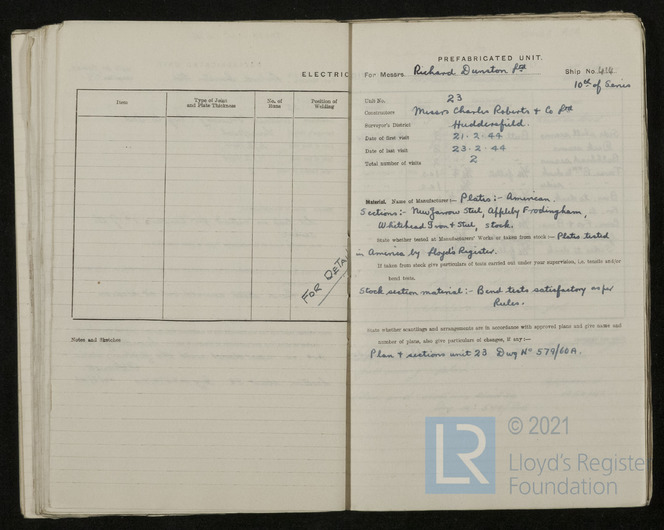 ELECTRIC
Item
Type of Joint and Plate Thickness
No. of Runs
Position of Welding
FOR DETA
Notes and Sketches
PREFABRICATED UNIT.
For Messrs. Richard Dunston Ltd Ship No.
10th of Series
Unit No. 23
Constructors Messrs Charles Roberts & Co Ltd
Surveyor's District Huddersfield.
Date of first visit 21.2.44
Date of last visit 23.2.44
Total number of visits 2
Material. Name of Manufacturer:- Plates:- American.
Sections:- New Jarrow Steel, Appleby Frodingham,
Whitehead Iron & Steel, stock.
State whether tested at Manufacturers' Works or taken from stock:- Plates tested
in America by Lloyd's Register.
If taken from stock give particulars of tests carried out under your supervision, i.e. tensile and/or
bend tests.
Stock section material:- Bend tests satisfactory as per
Rules.
State whether scantlings and arrangements are in accordance with approved plans and give name and
number of plans, also give particulars of changes, if any:-
Plan & sections unit 23 Dwg No 579/60A.
© 2021
LR
Lloyd's Register
Foundation